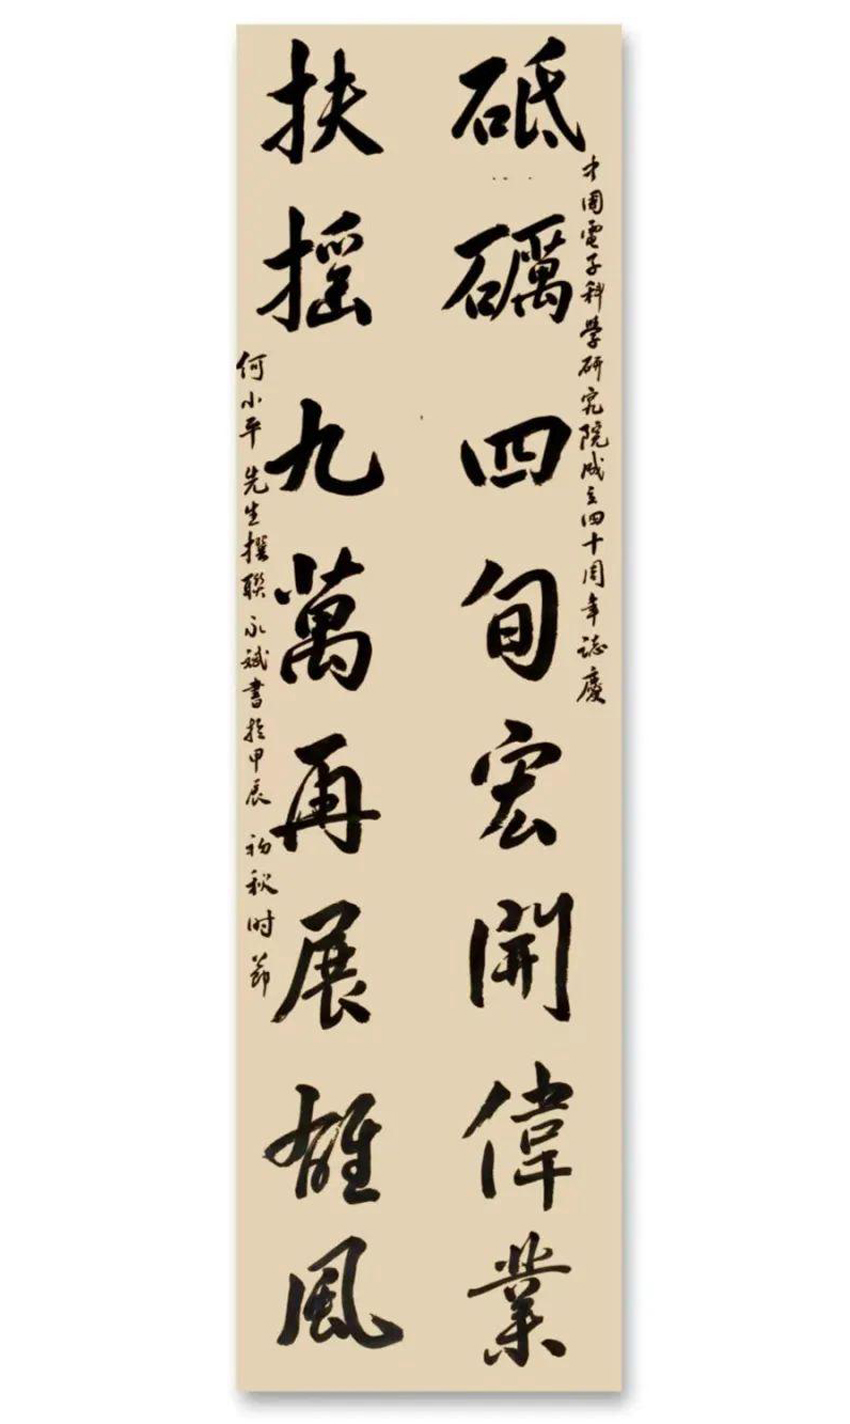 中國電子科學研究院成立四十周年誌慶
砥礪四旬宏開偉業
扶摇九萬再展雄風
何小平先生撰聯永斌書於甲辰初秋时節